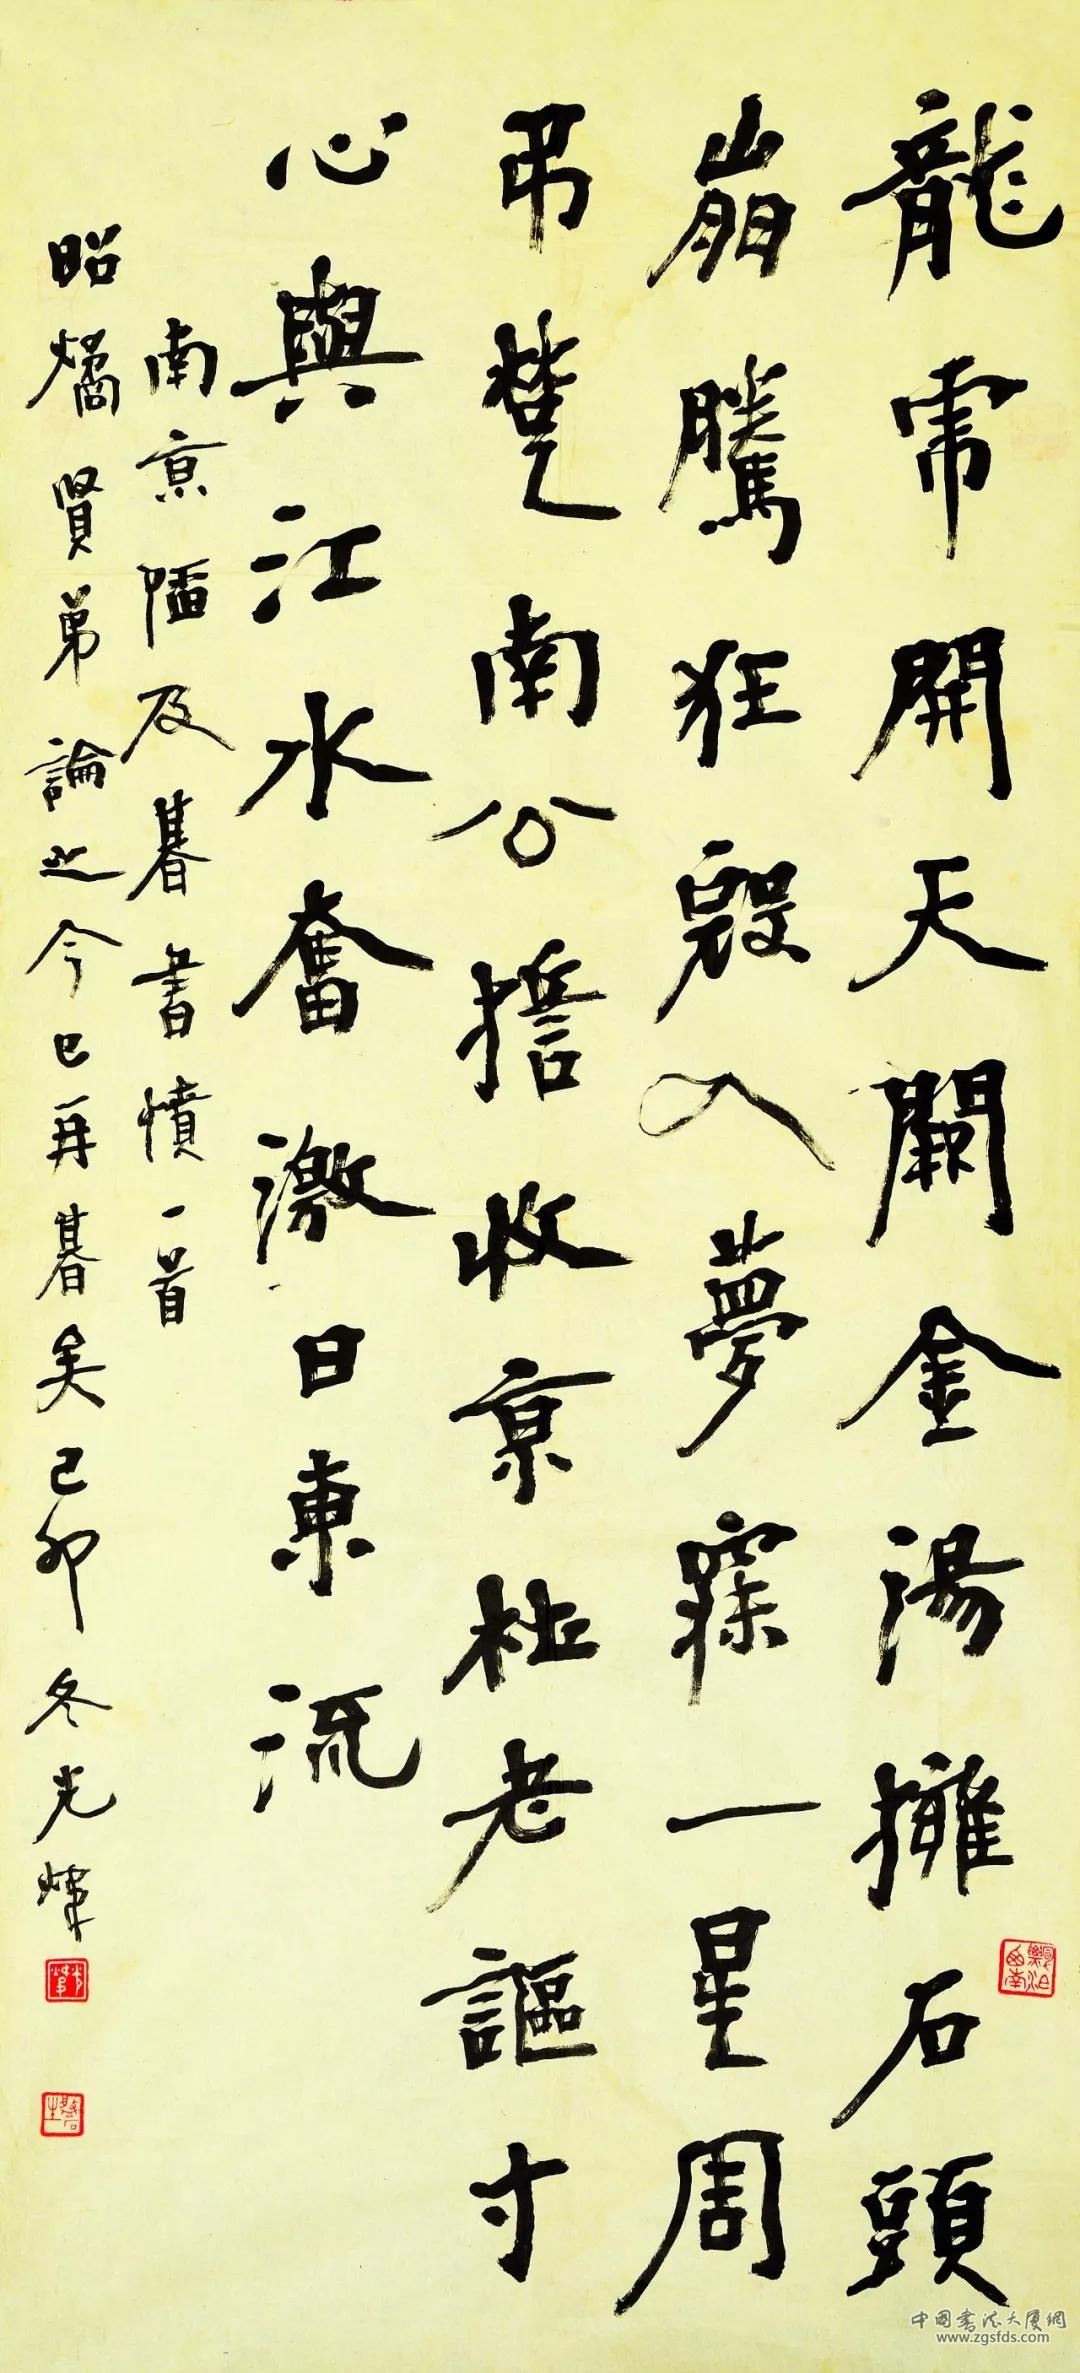 龍虎開天闕金湯擁石頭
崩騰狂寇入夢寐一星周
弔楚南公誓收京杜老謳寸
心與江水奮激日東流
南京陷及朞書憤一首
昭燏賢弟論之今已再朞矣己卯冬光煒
飄泊西南
中國書法大厦網
www.zgsfds.com